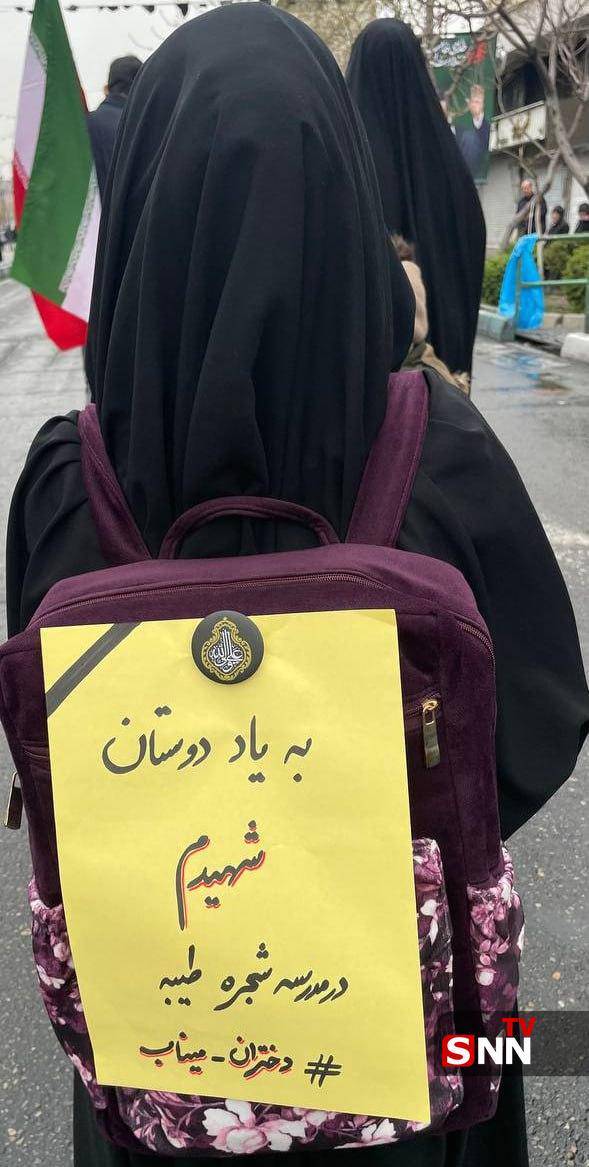 به یاد دوستان
شهیدم
در مدرسه شجره طیبه
#دختران_میناب
SNN TV